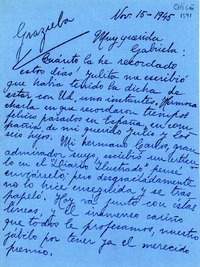 Nov. 15-1945
Grazuela
Muy querida
Gabriela:
Cuánto la he recordado
estos días! Julita me escribió
que había tenido la dicha de
estar con Ud. unos instantes,
charla en que recordaron tiempos
felices pasados en España, en com-
pañía de mi querido Julio y los
sus hijos.
Mi hermano Carlos, gran
admirador suyo, escribió un artícu-
lo en el "Diario Ilustrado" pensé
enviárselo; pero desgraciadamente
no lo hice enseguida y se tras-
papeló. Hoy va junto con estas
líneas, y el inmenso cariño
que todos le profesamos, nuestro
júbilo por tener ya el merecido
premio.